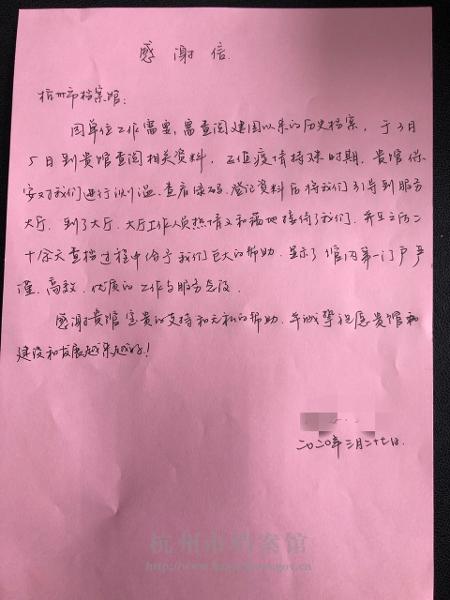 感谢信
杭州市档案馆:
因单位工作需要,需查阅建国以来的历史档案,于3月
5日到贵馆查阅相关资料,正值疫情特殊时期,贵馆保
安对我们进行测温、查看绿码、登记资料后将我们引导到服务
大厅,到了大厅,大厅工作人员热情又和蔼地接待了我们,并且在后二
十余天查档过程中给予我们巨大的帮助,显示了馆内第一门户严
谨、高效、优质的工作与服务态度。
感谢贵馆宝贵的支持和无私的帮助,并诚挚祝愿贵馆
建设和发展越来越好!
二〇二〇年三月二十七日
杭州市档案馆